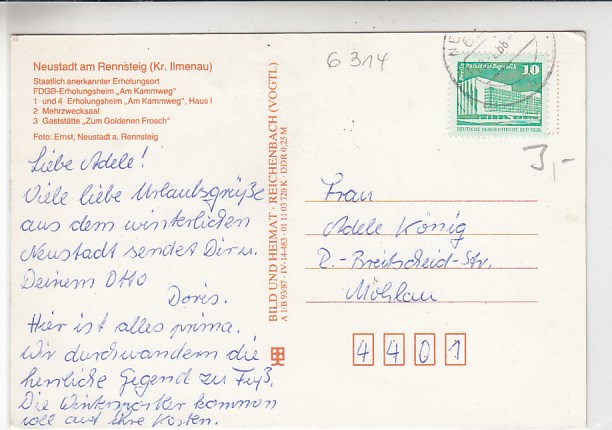 Neustadt am Rennsteig (Kr. Ilmenau)
Staatlich anerkannter Erholungsort
FDGB-Erholungsheim „Am Kammweg"
1 und 4 Erholungsheim „Am Kammweg", Haus I
2 Mehrzwecksaal
3 Gaststätte „Zum Goldenen Frosch"
Foto: Ernst, Neustadt a. Rennsteig
Liebe Adele!
Viele liebe Urlaubsgrüße
aus dem winterlichen
Neustadt sendet Dir u.
Deinem Otto
Doris.
Hier ist alles prima.
Wir durchwandern die
herrliche Gegend zu Fuß.
Die Wintersportler kommen
voll auf ihre Kosten.
BILD UND HEIMAT · REICHENBACH (VOGTL)
A 1/B 93/87 · IV-14-483 · 01 11 03 720 K · DDR 0,25 M
6 314
10
DEUTSCHE DEMOKRATISCHE REPUBLIK
3,-
Frau
Adele König
R.-Breitscheid-Str.
Möhlau
4 4 0 1